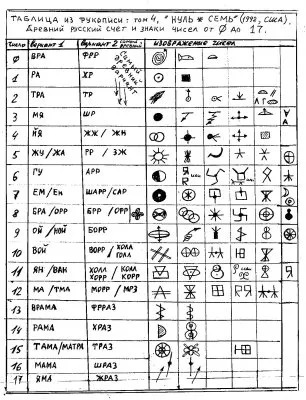 ТАБЛИЦА ИЗ РУКОПИСИ: ТОМ 4, "НУЛЬ * СЕМЬ" (1992, США).
ДРЕВНИЙ РУССКИЙ СЧЕТ И ЗНАКИ ЧИСЕЛ ОТ 0 ДО 17.
ЧИСЛО ВАРИАНТ 1 ВАРИАНТ 2 ИЗОБРАЖЕНИЕ ЧИСЕЛ
0 ВРА ФРР
1 РА ХР
2 ТРА ТР
3 МЯ ШР
4 ЖЖ / ЖН
5 ЖУ/ЖА РР / ЗЖ
6 ГУ АРР
7 ЕМ/ЕН ШАРР/САР
8 БРА/ОРР БРР / ОРР
9 ОЙ / НОЙ БОРР
10 ВОЙ ВОРР / ХОЛЛ ГОЛЛ
11 ЯН/ВАН ХОЛЛ ХОРР / КОЛЛ КОРР
12 МА/ТМА МОРР / МРЗ
13 ВРАМА ФРРАЗ
14 РАМА ХРАЗ
15 ТАМА/МАТРА ТРАЗ
16 МАМА ШРАЗ
17 ЯМА ЖРАЗ